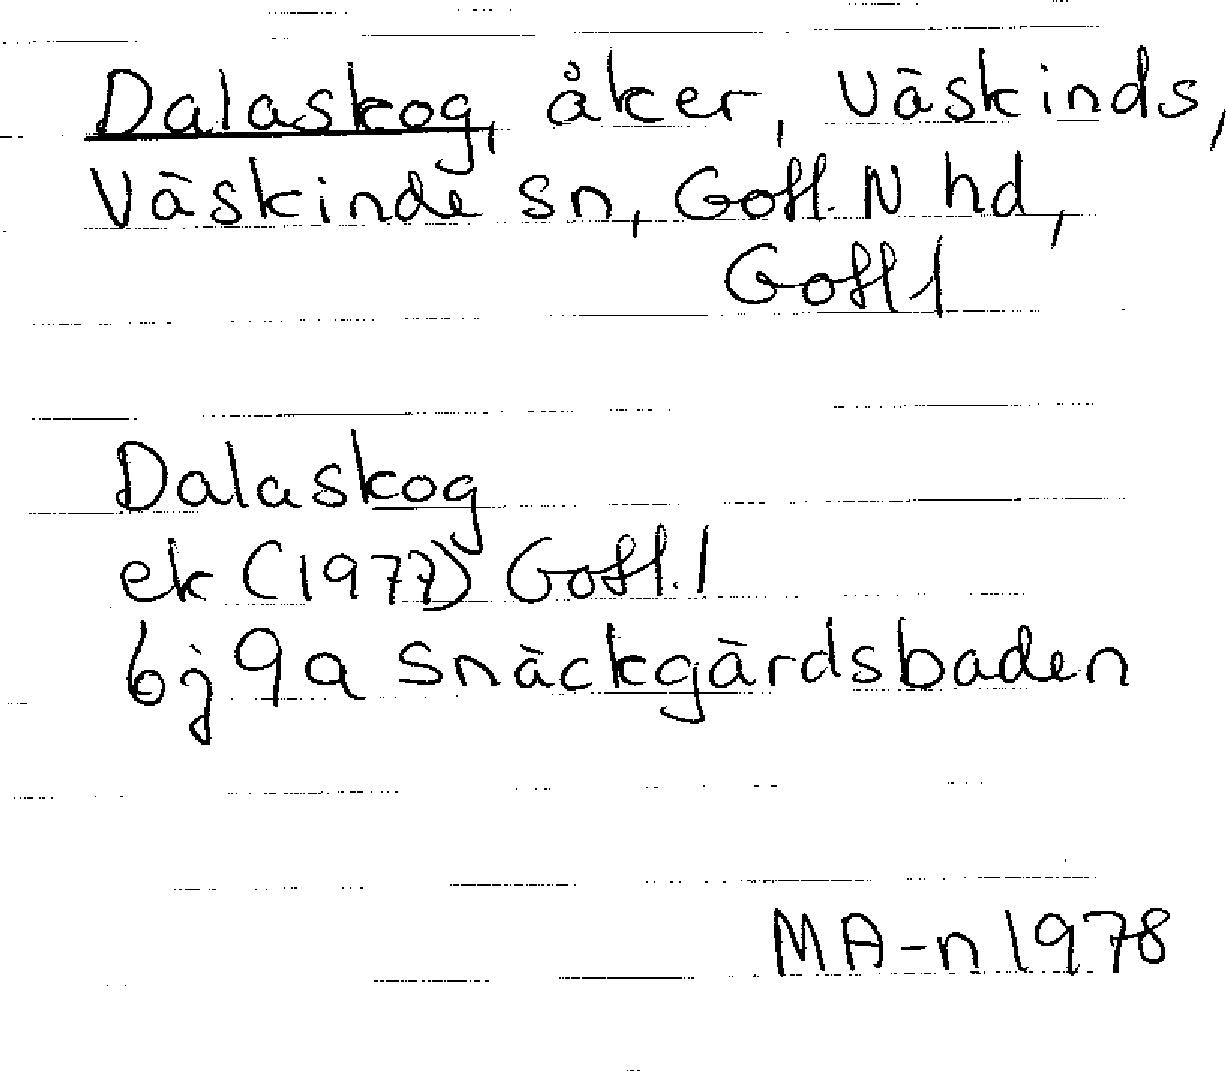 Dalaskog, åker, Väskinds,
Väskinde sn, Gotl. N hd,
Gotl l
Dalaskog
ek (1977) Gotl. l
6j 9a Snäckgärdsbaden
MA-n 1978